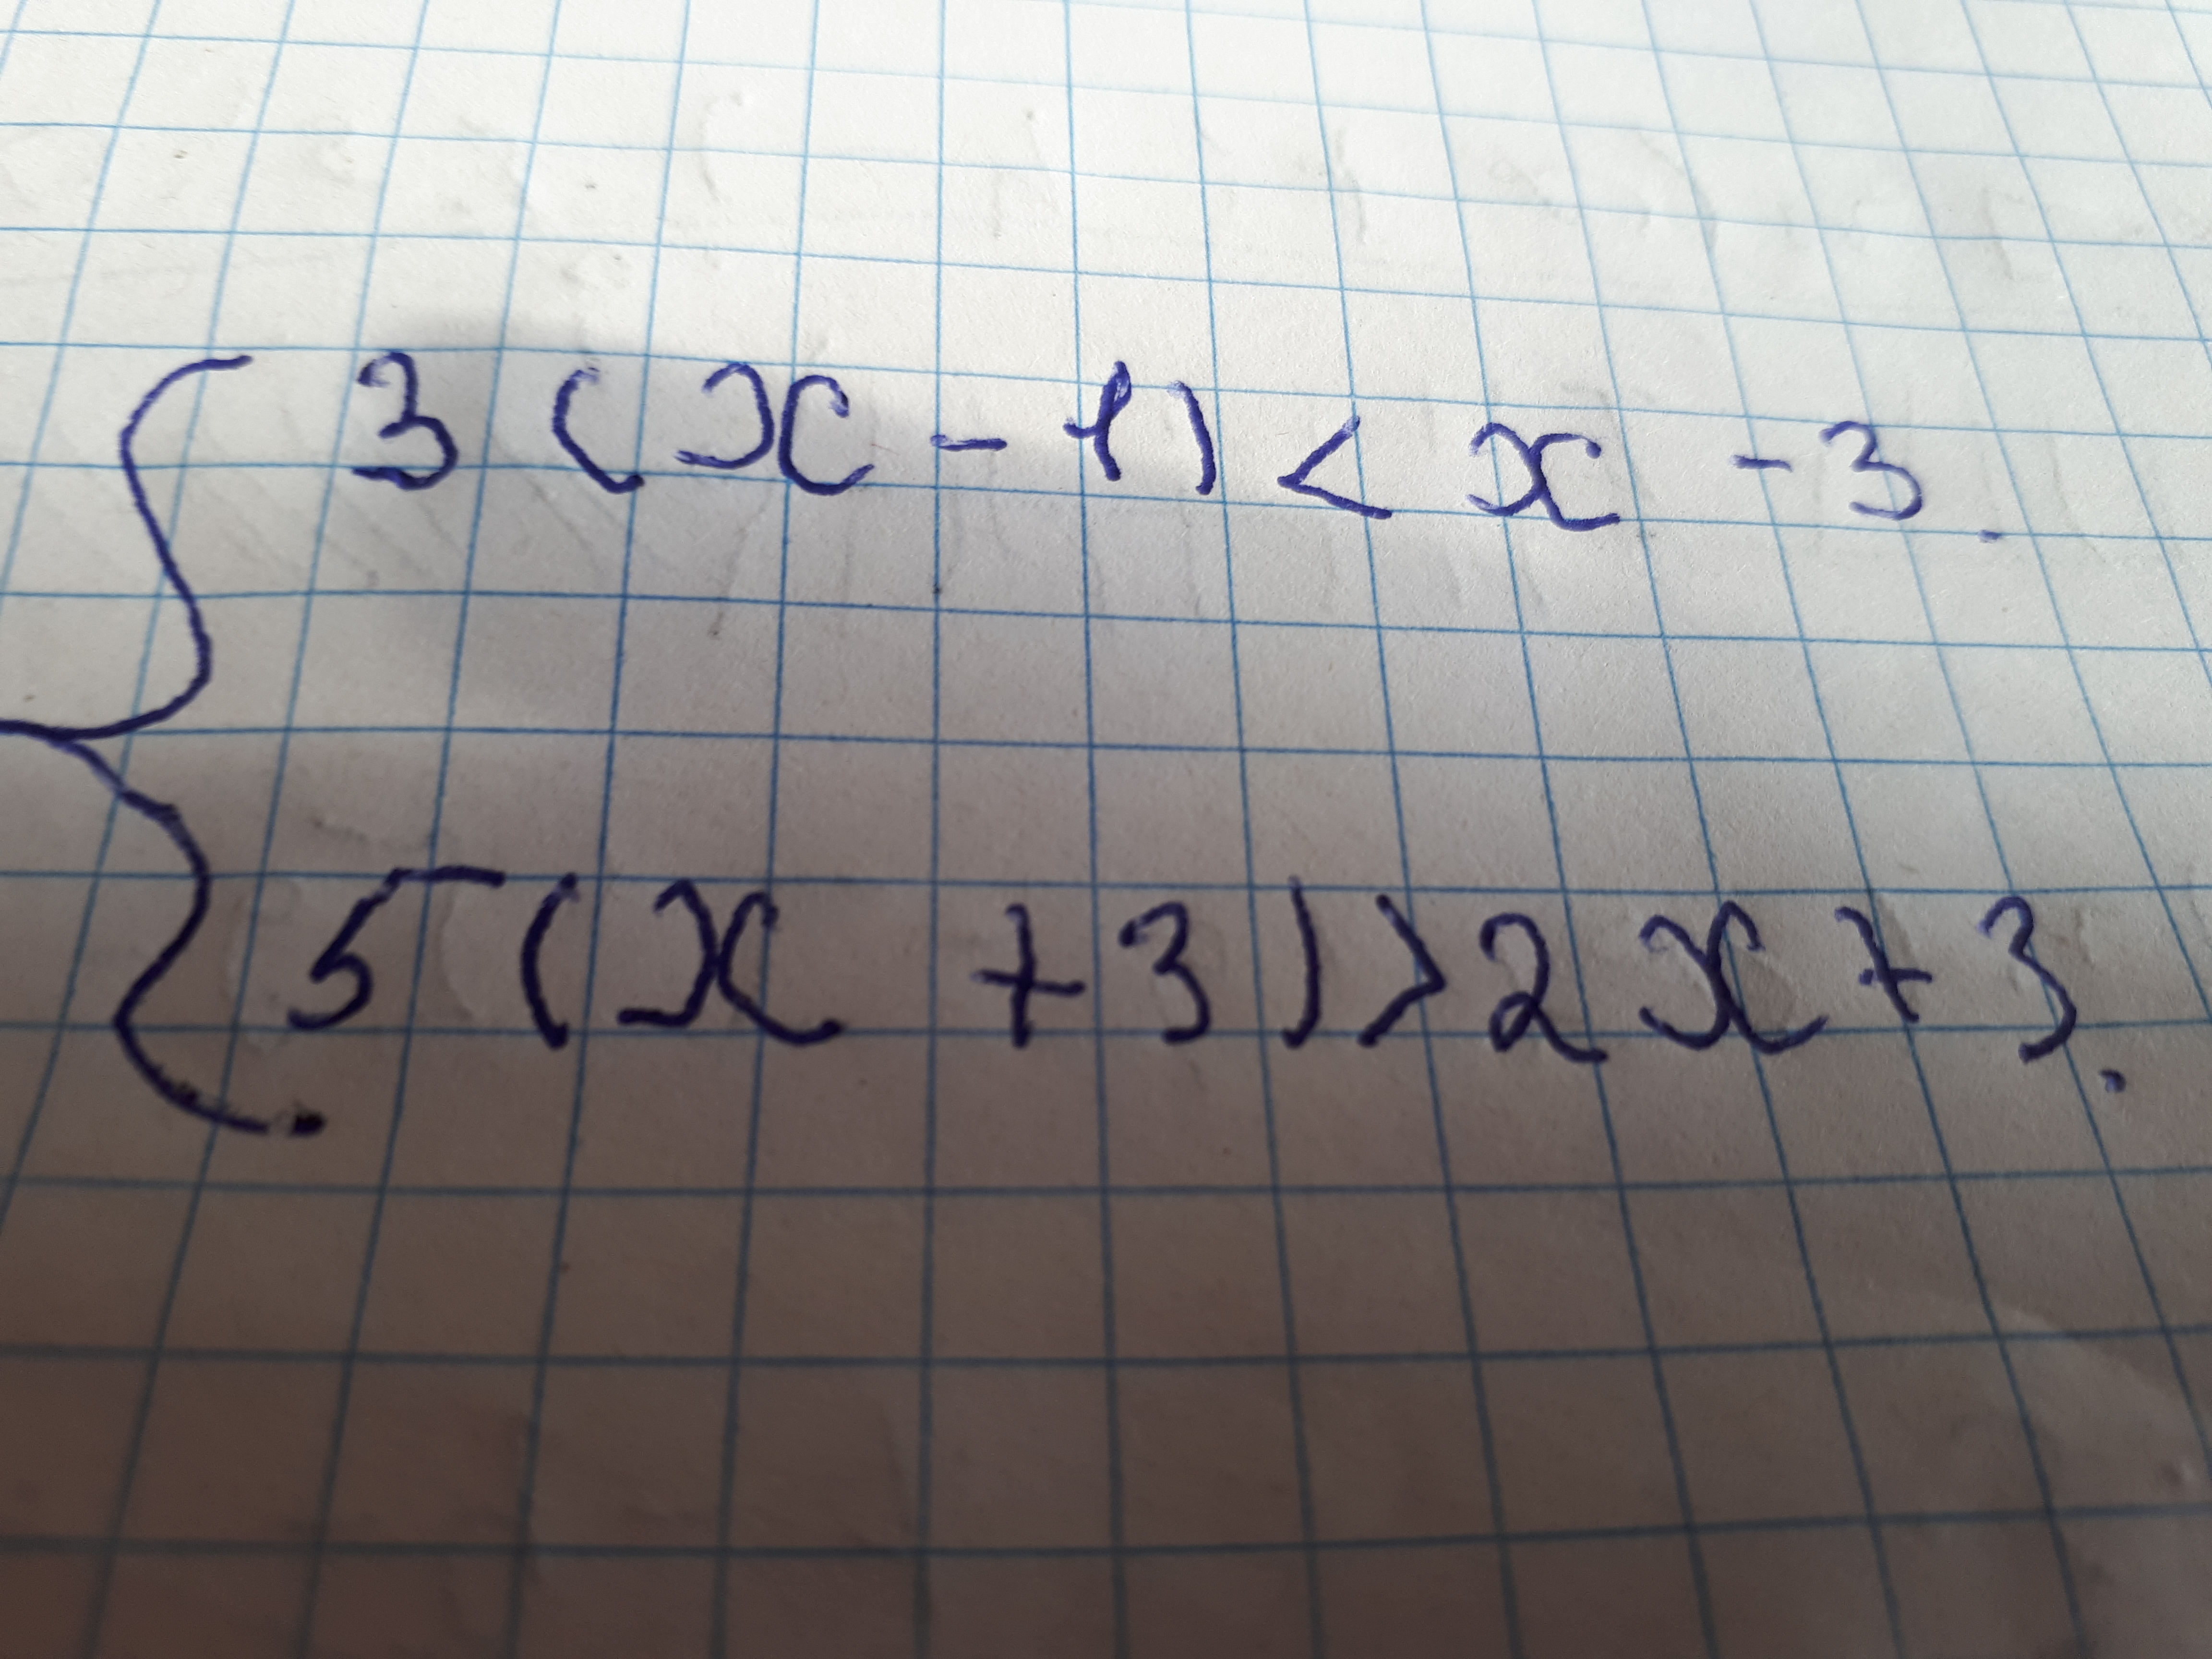 3(x-1)<x-3.
5(x+3)>2x+3.